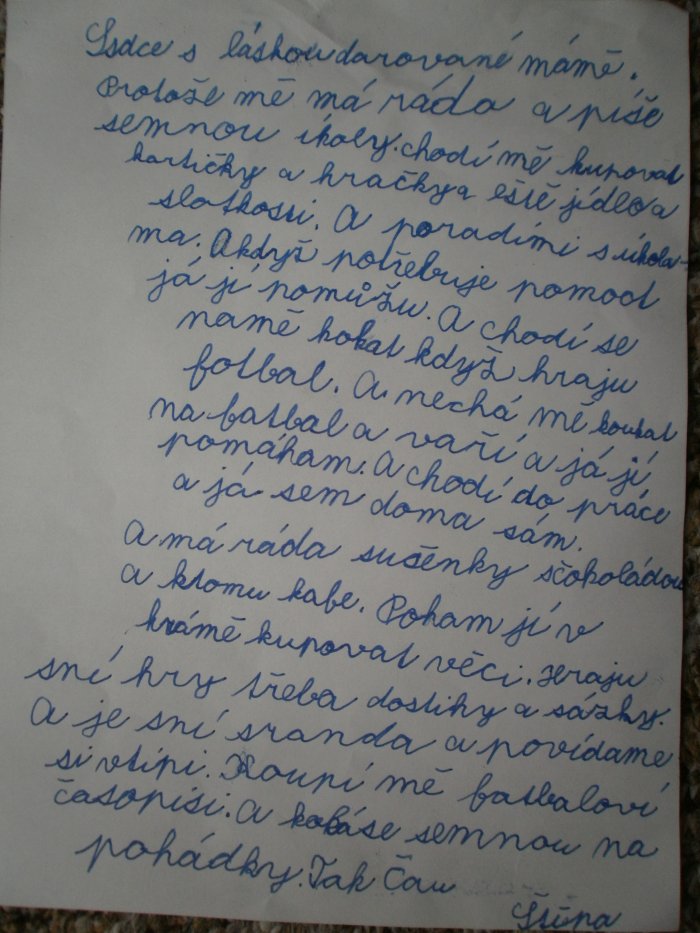 Srdce s láskou darované mámě.
Protože mě má ráda a píše
semnou úkoly. chodí mě kupovat
kartičky a hračky a eště jídlo a
slatkosti. A poradími s úkola-
ma. A když potřebuje pomoct
já jí pomůžu. A chodí se
namě kokat když hraju
fotbal. A nechá mě koukat
na batbal a vaří a já jí
pomáham. A chodí do práce
a já sem doma sám.
A má ráda sušenky sčokoládou
a ktomu kabe. Poham jí v
krámě kupovat věci. Hraju
sní hry třeba dostihy a sázky.
A je sní sranda a povídame
si vtipi. Koupí mě batbaloví
časopisi. A kokáse semnou na
pohádky. Tak Čau
Štěpa